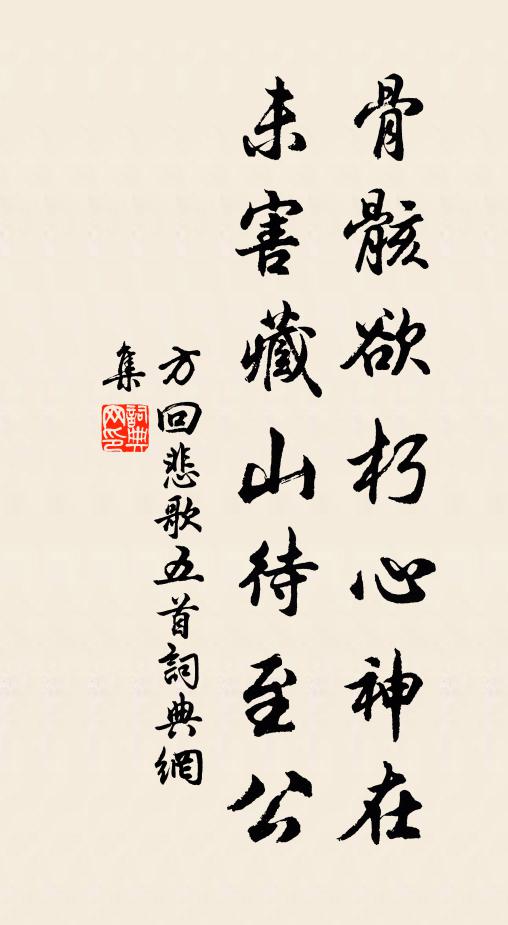 骨骸欲朽心神在
未害藏山待至公
方回悲歌五首詞典網
集
詞典
网印